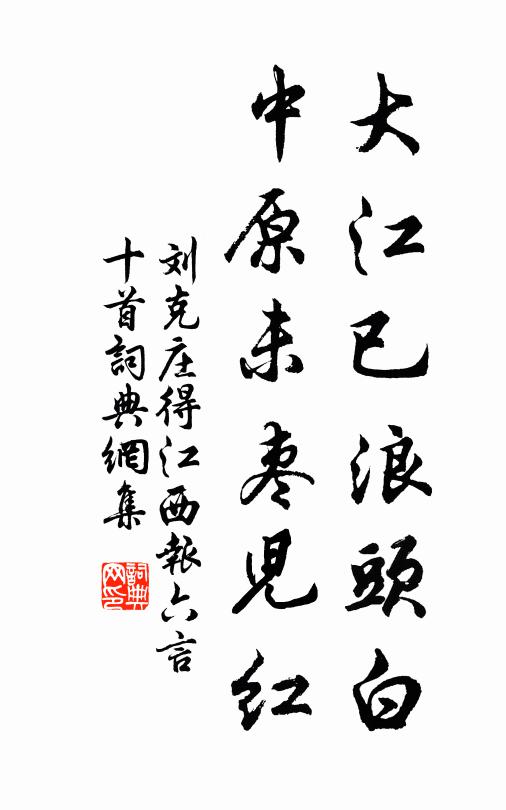 大江已浪頭白
中原未枣児红
刘克庄得江西報六言
十首詞典網集
詞典
网印